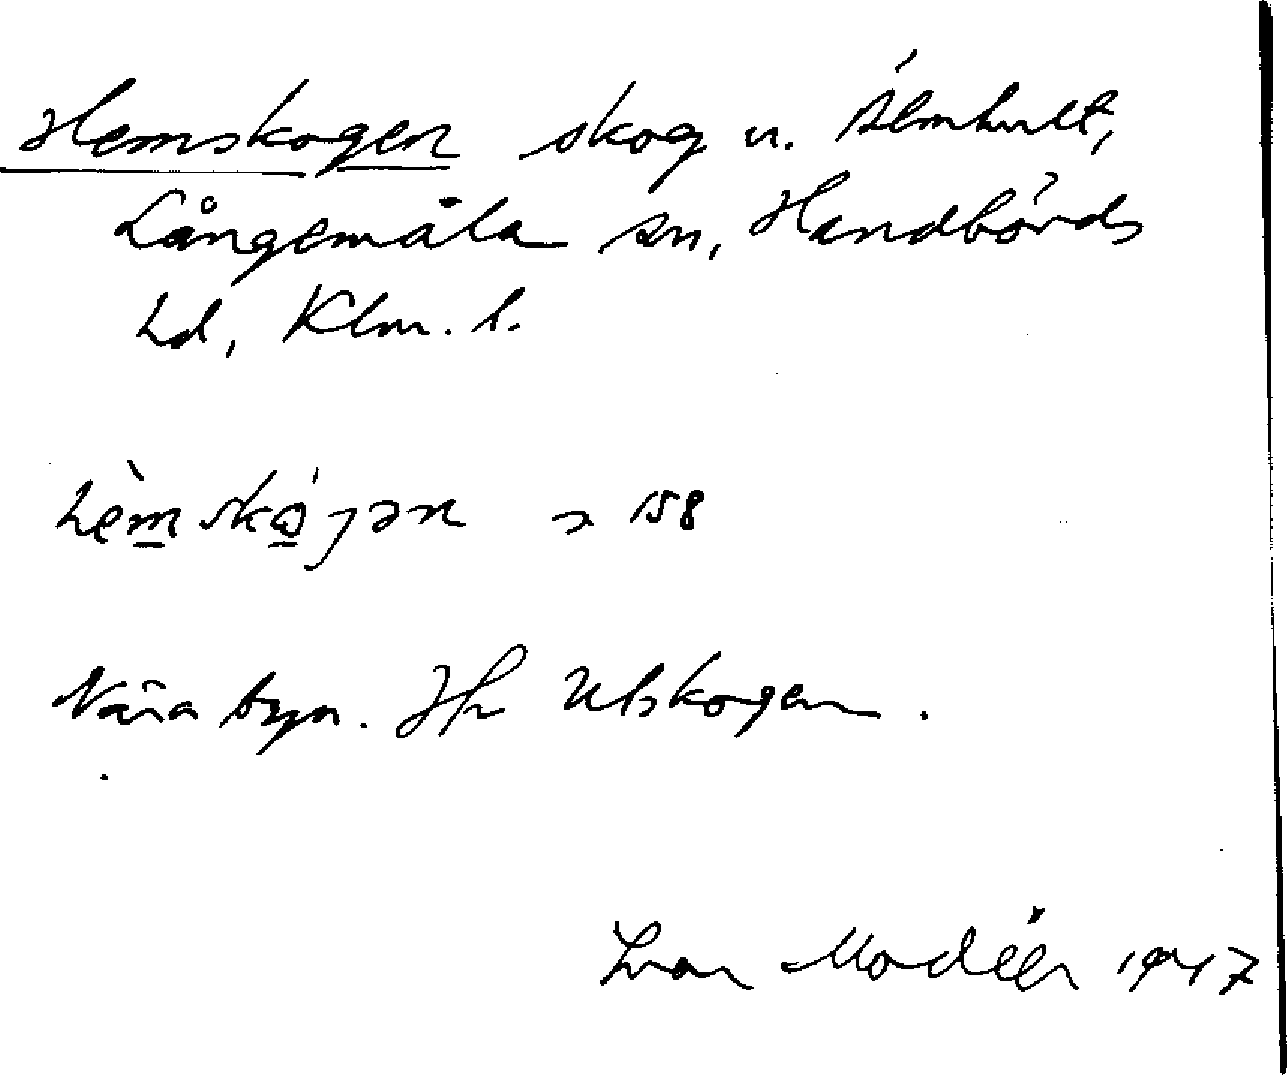 Hemskogen skog u. Älmhult,
Långemåla sn, Handbörds
hd, Klm. l.
hèmskó̠gən 158
Nära byn. Jfr Utskogen.
Ivar Modéer 1947